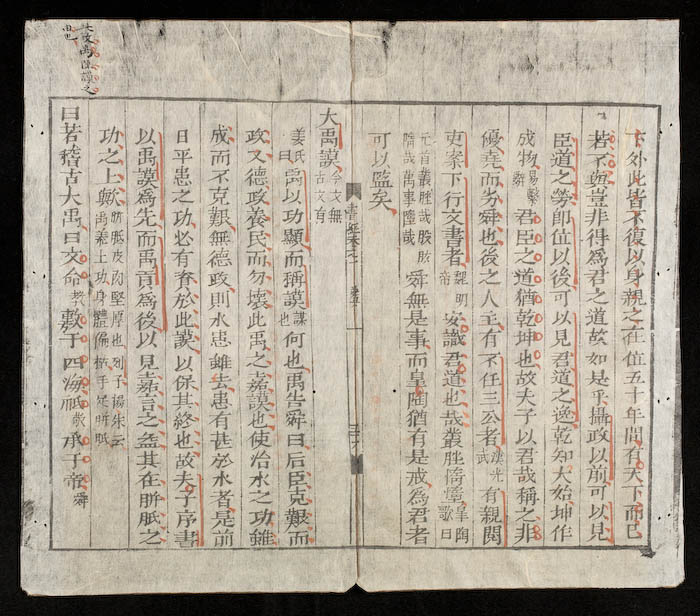 下外此皆不復以身親之在位五十年間有天下而已
若不與豈非得為君之道故如是乎攝政以前可以見
臣道之勞即位以後可以見君道之逸乾知大始坤作
成物易繫辭君臣之道猶乾坤也故夫子以君哉稱之非
優堯而劣舜也後之人主有不任三公者漢光武有親閱
吏案下行文書者魏明帝安識君道也哉叢脞惰隳皐陶歌曰
元首叢脞哉股肱惰哉萬事隳哉舜無是事而皐陶猶有是戒為君者
可以監矣
大禹謨今文無古文有
姜氏曰禹以功顯而稱謨謀也何也禹告舜曰后臣克艱而
政乂德政養民而勿壞此禹之嘉謨也使治水之功雖
成而不克艱無德政則水患雖去患有甚於水者是前
日平患之功必有資於此謨以保其終也故夫子序書
以禹謨為先而禹貢為後以見嘉言之益其在胼胝之
功之上歟胼胝皮肉堅厚也列子楊朱云禹纂土功身體偏枯手足胼胝
曰若稽古大禹曰文命敷于四海祗敬承于帝舜
大改禹陳謨之